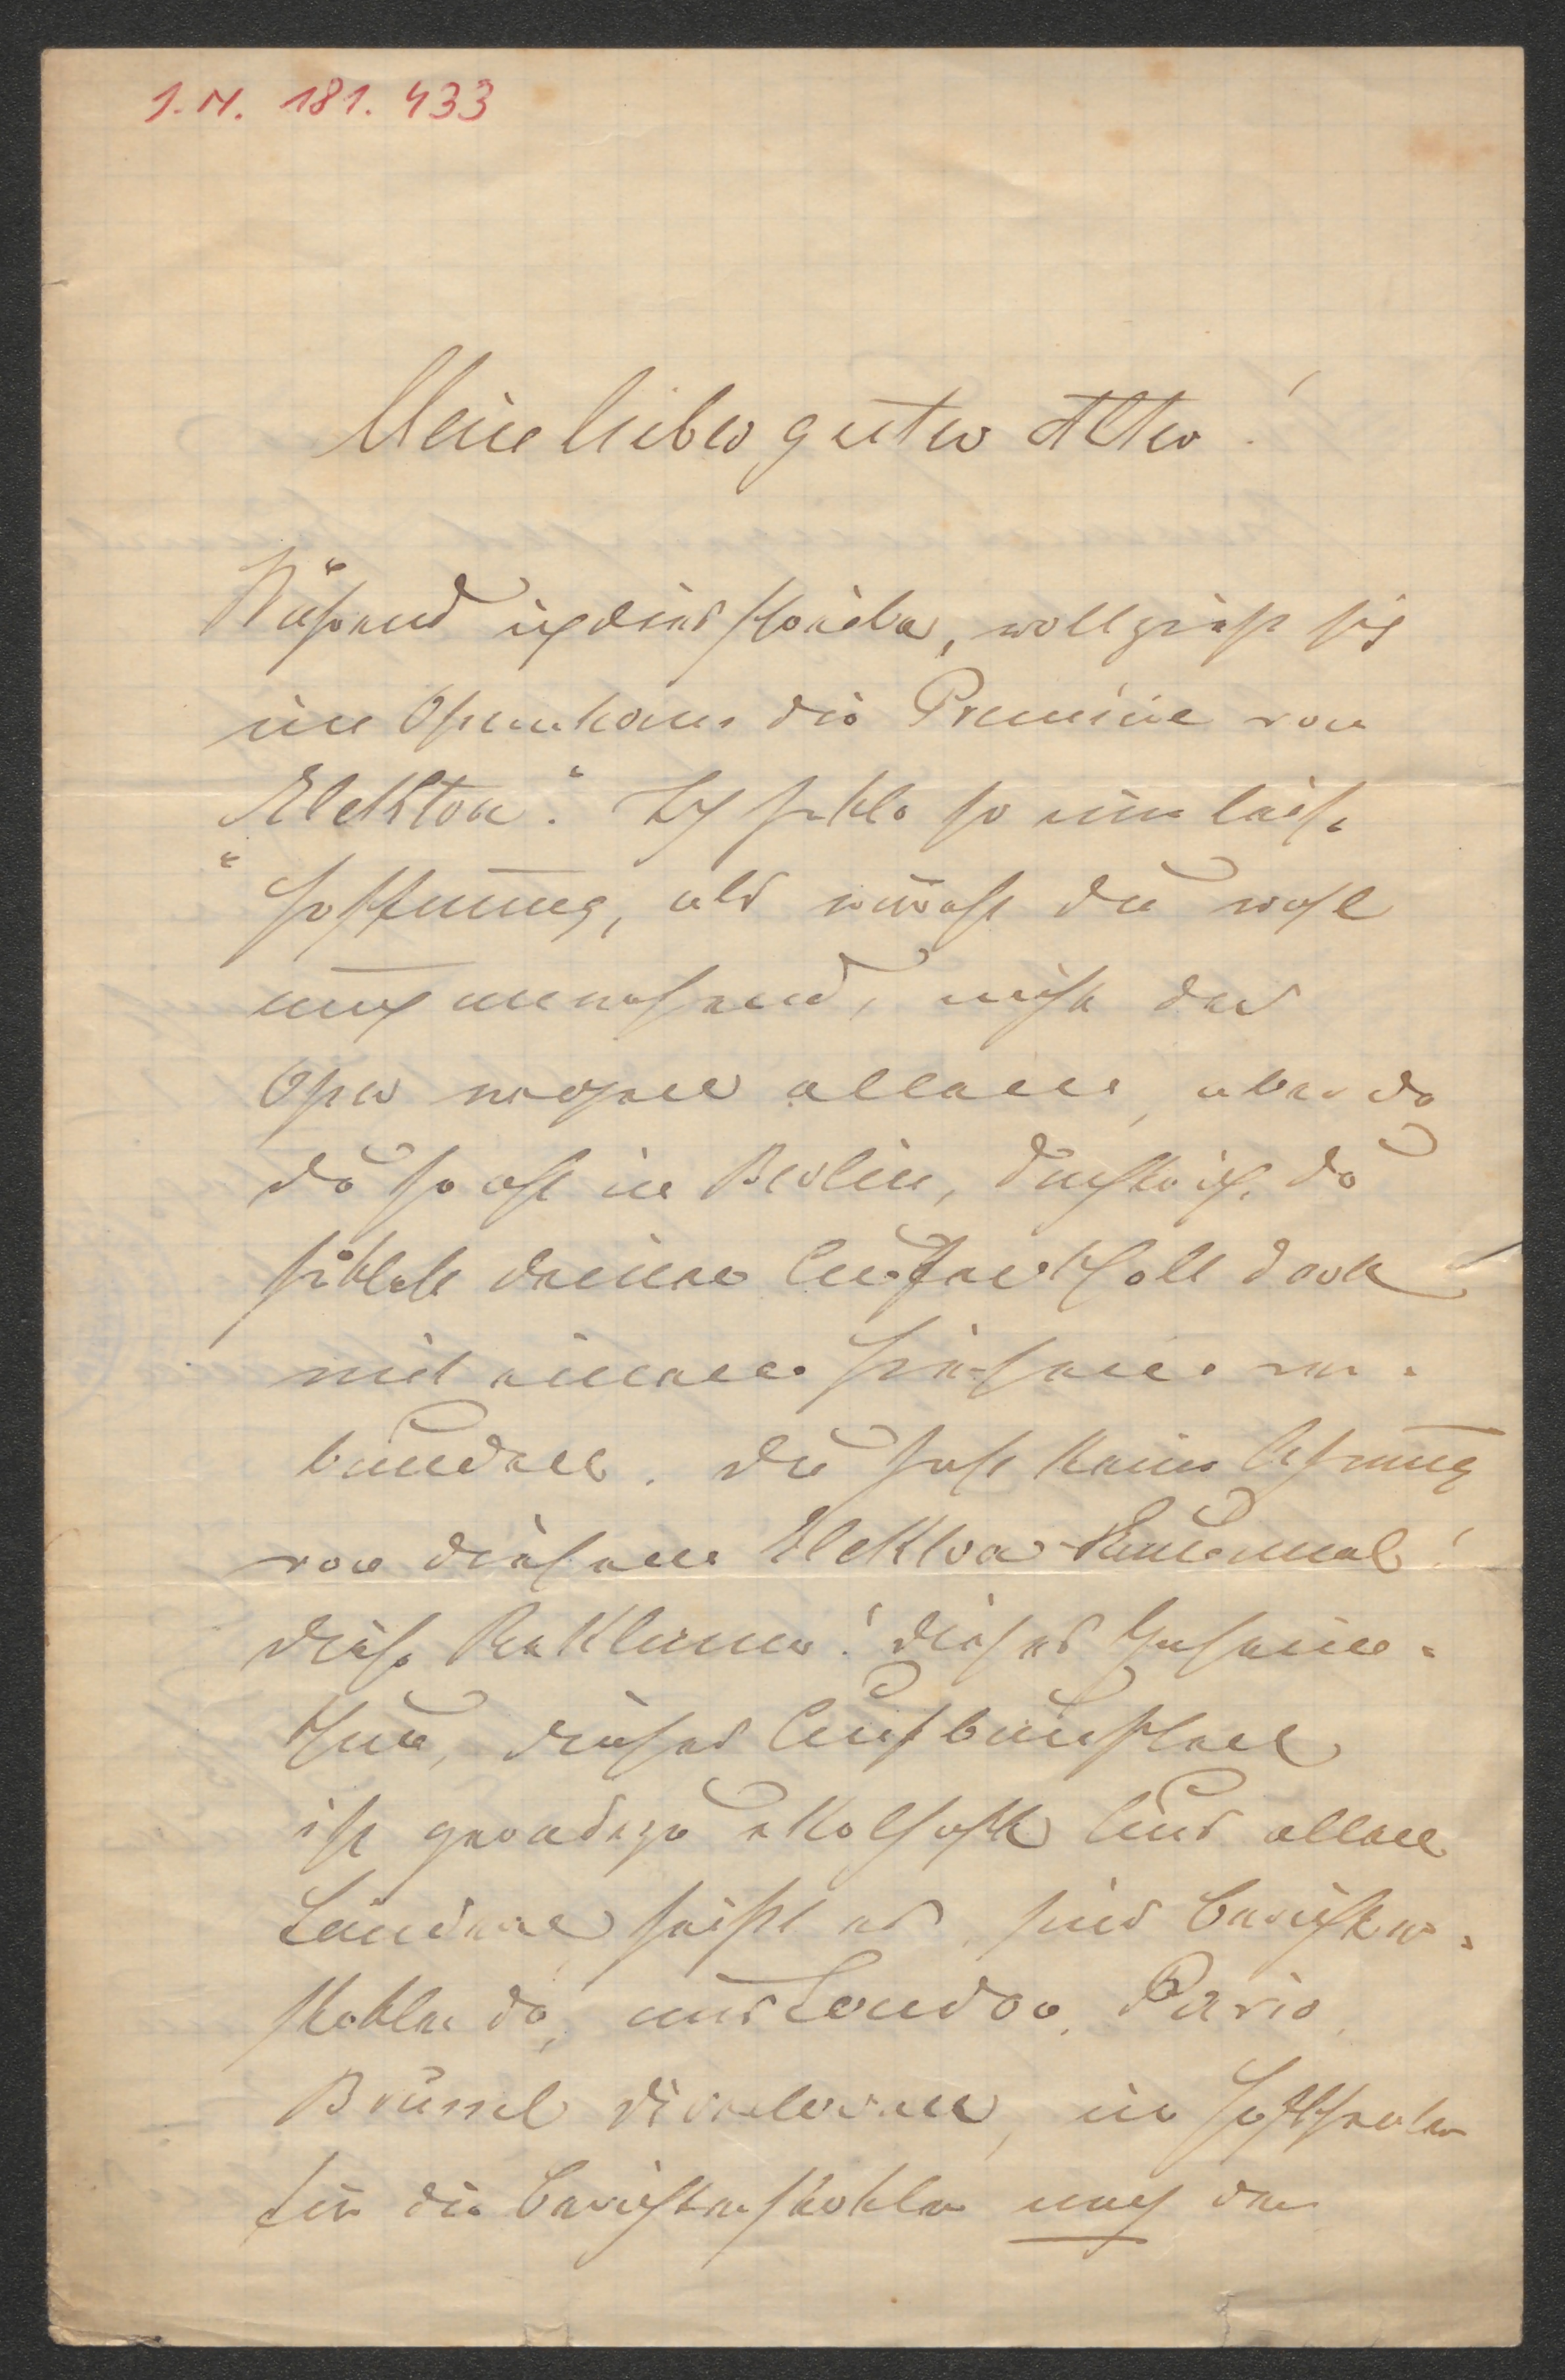 J. N. 181.433
Mein lieber guter Alter!
Während ich dies schreibe, vollzieht sich
im Opernhaus die Premiere von
"Elektra". Ich hatte so eine leise
Hoffnung, als würdest du wohl
auch anwesend, nicht der
Oper wegen allein, aber da
du so oft in Berlin, dachte ich, du
hättest deinen Aufenthalt dort
mit einem hiesigen ver-
bunden. Du hast keine Ahnung
von diesem Elektra-Rummel!
diese Reklame! dieses
dieses Aufbauschen
ist geradezu ekelhaft Aus allen
Ländern heißt es, sind Berichter-
statter da, aus London, Paris,
Brüssel im Hoftheater
für die Berichterstatter nach der